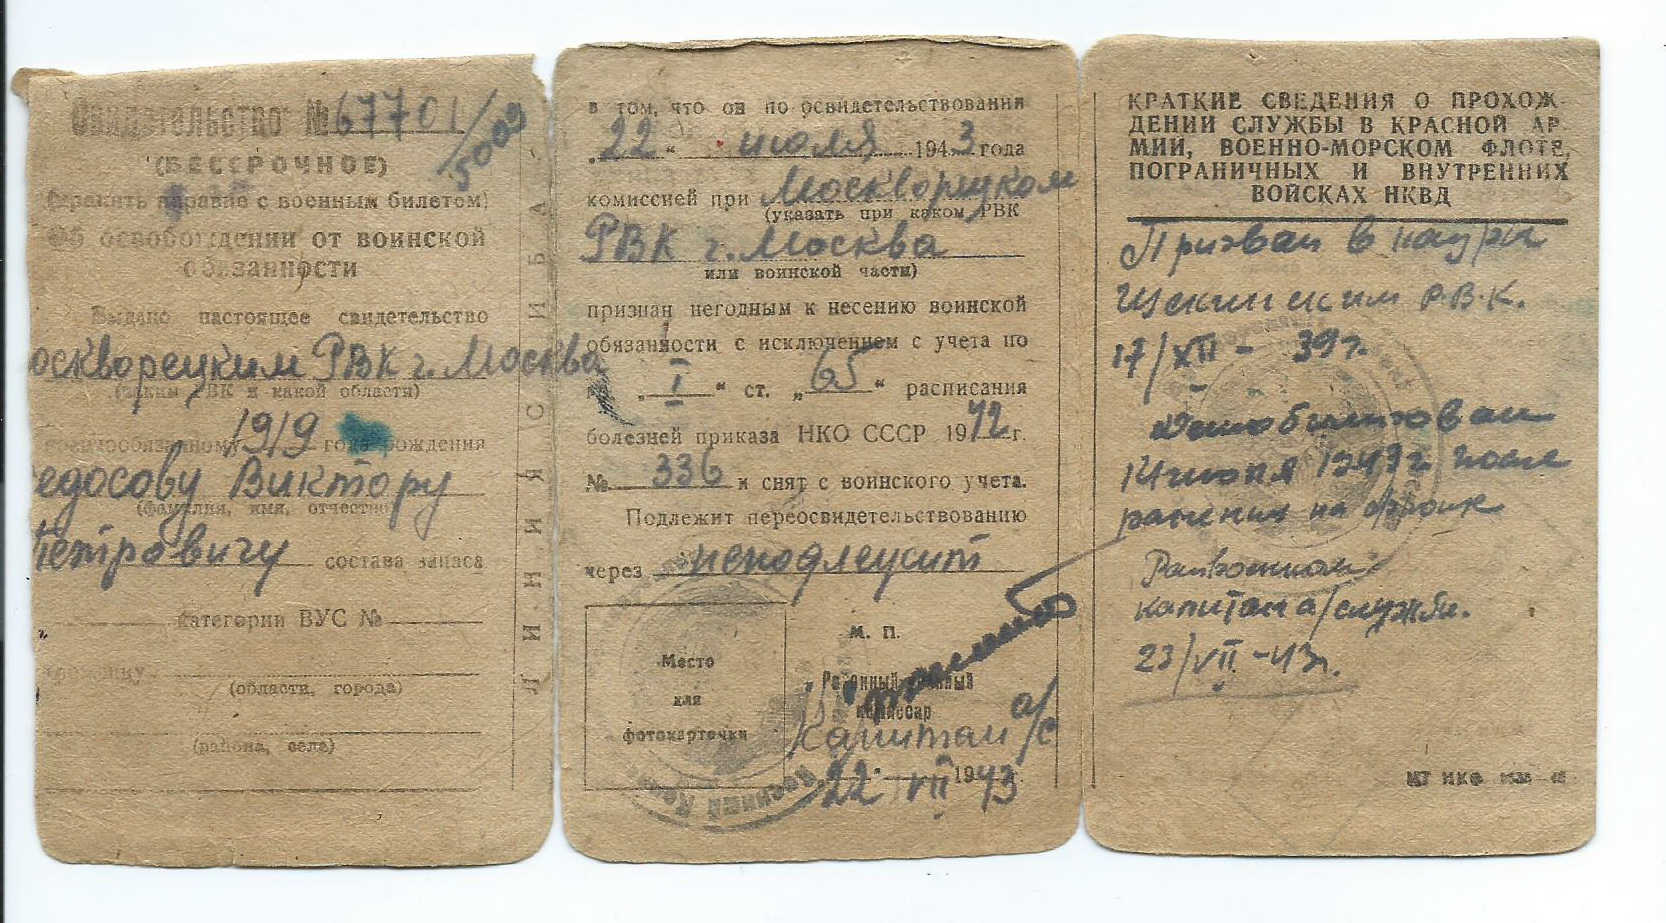 Свидетельство № 67701/5009
(БЕССРОЧНОЕ)
(хранить наравне с военным билетом)
Об освобождении от воинской
обязанности
Выдано настоящее свидетельство
оскворецким РВК г. Москва
(каким РВК и какой области)
военнообязанному 1919 года рождения
едосову Виктору
(фамилия, имя, отчество)
Петровичу состава запаса
категории ВУС №
(области, города)
(района, села)
ЛИНИЯ СГИБА
в том, что он по освидетельствовании
„22“ июля 1943 года
комиссией при Москворецком
(указать при каком РВК
РВК г. Москва
или воинской части)
признан негодным к несению воинской
обязанности с исключением с учета по
„I“ ст. „65“ расписания
болезней приказа НКО СССР 1942 г.
№ 336 и снят с воинского учета.
Подлежит переосвидетельствованию
через неподлежит
Место
для
фотокарточки
М. П.
Районный военный
комиссар
Капитан а/с
22 VII 1943
КРАТКИЕ СВЕДЕНИЯ О ПРОХОЖ-
ДЕНИИ СЛУЖБЫ В КРАСНОЙ АР
МИИ, ВОЕННО-МОРСКОМ ФЛОТЕ,
ПОГРАНИЧНЫХ И ВНУТРЕННИХ
ВОЙСКАХ НКВД
Призван в
Щекинским Р.В.К.
17/XII - 39 г.
Демобилизован
14 июня 1943 г после
ранения на фронте
Райвоенком
капитан а/службы.
23/VII - 43 г.